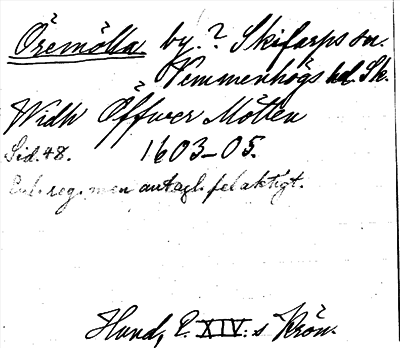 Öremölla by.? Skifarps sn.
Vemmenhögs hd. Sk.
Widh Öffwer Möllen
Sid. 48. 1603-05.
Enl. reg. men antagl. felaktigt.
Hand, P. XIV:s Krön.